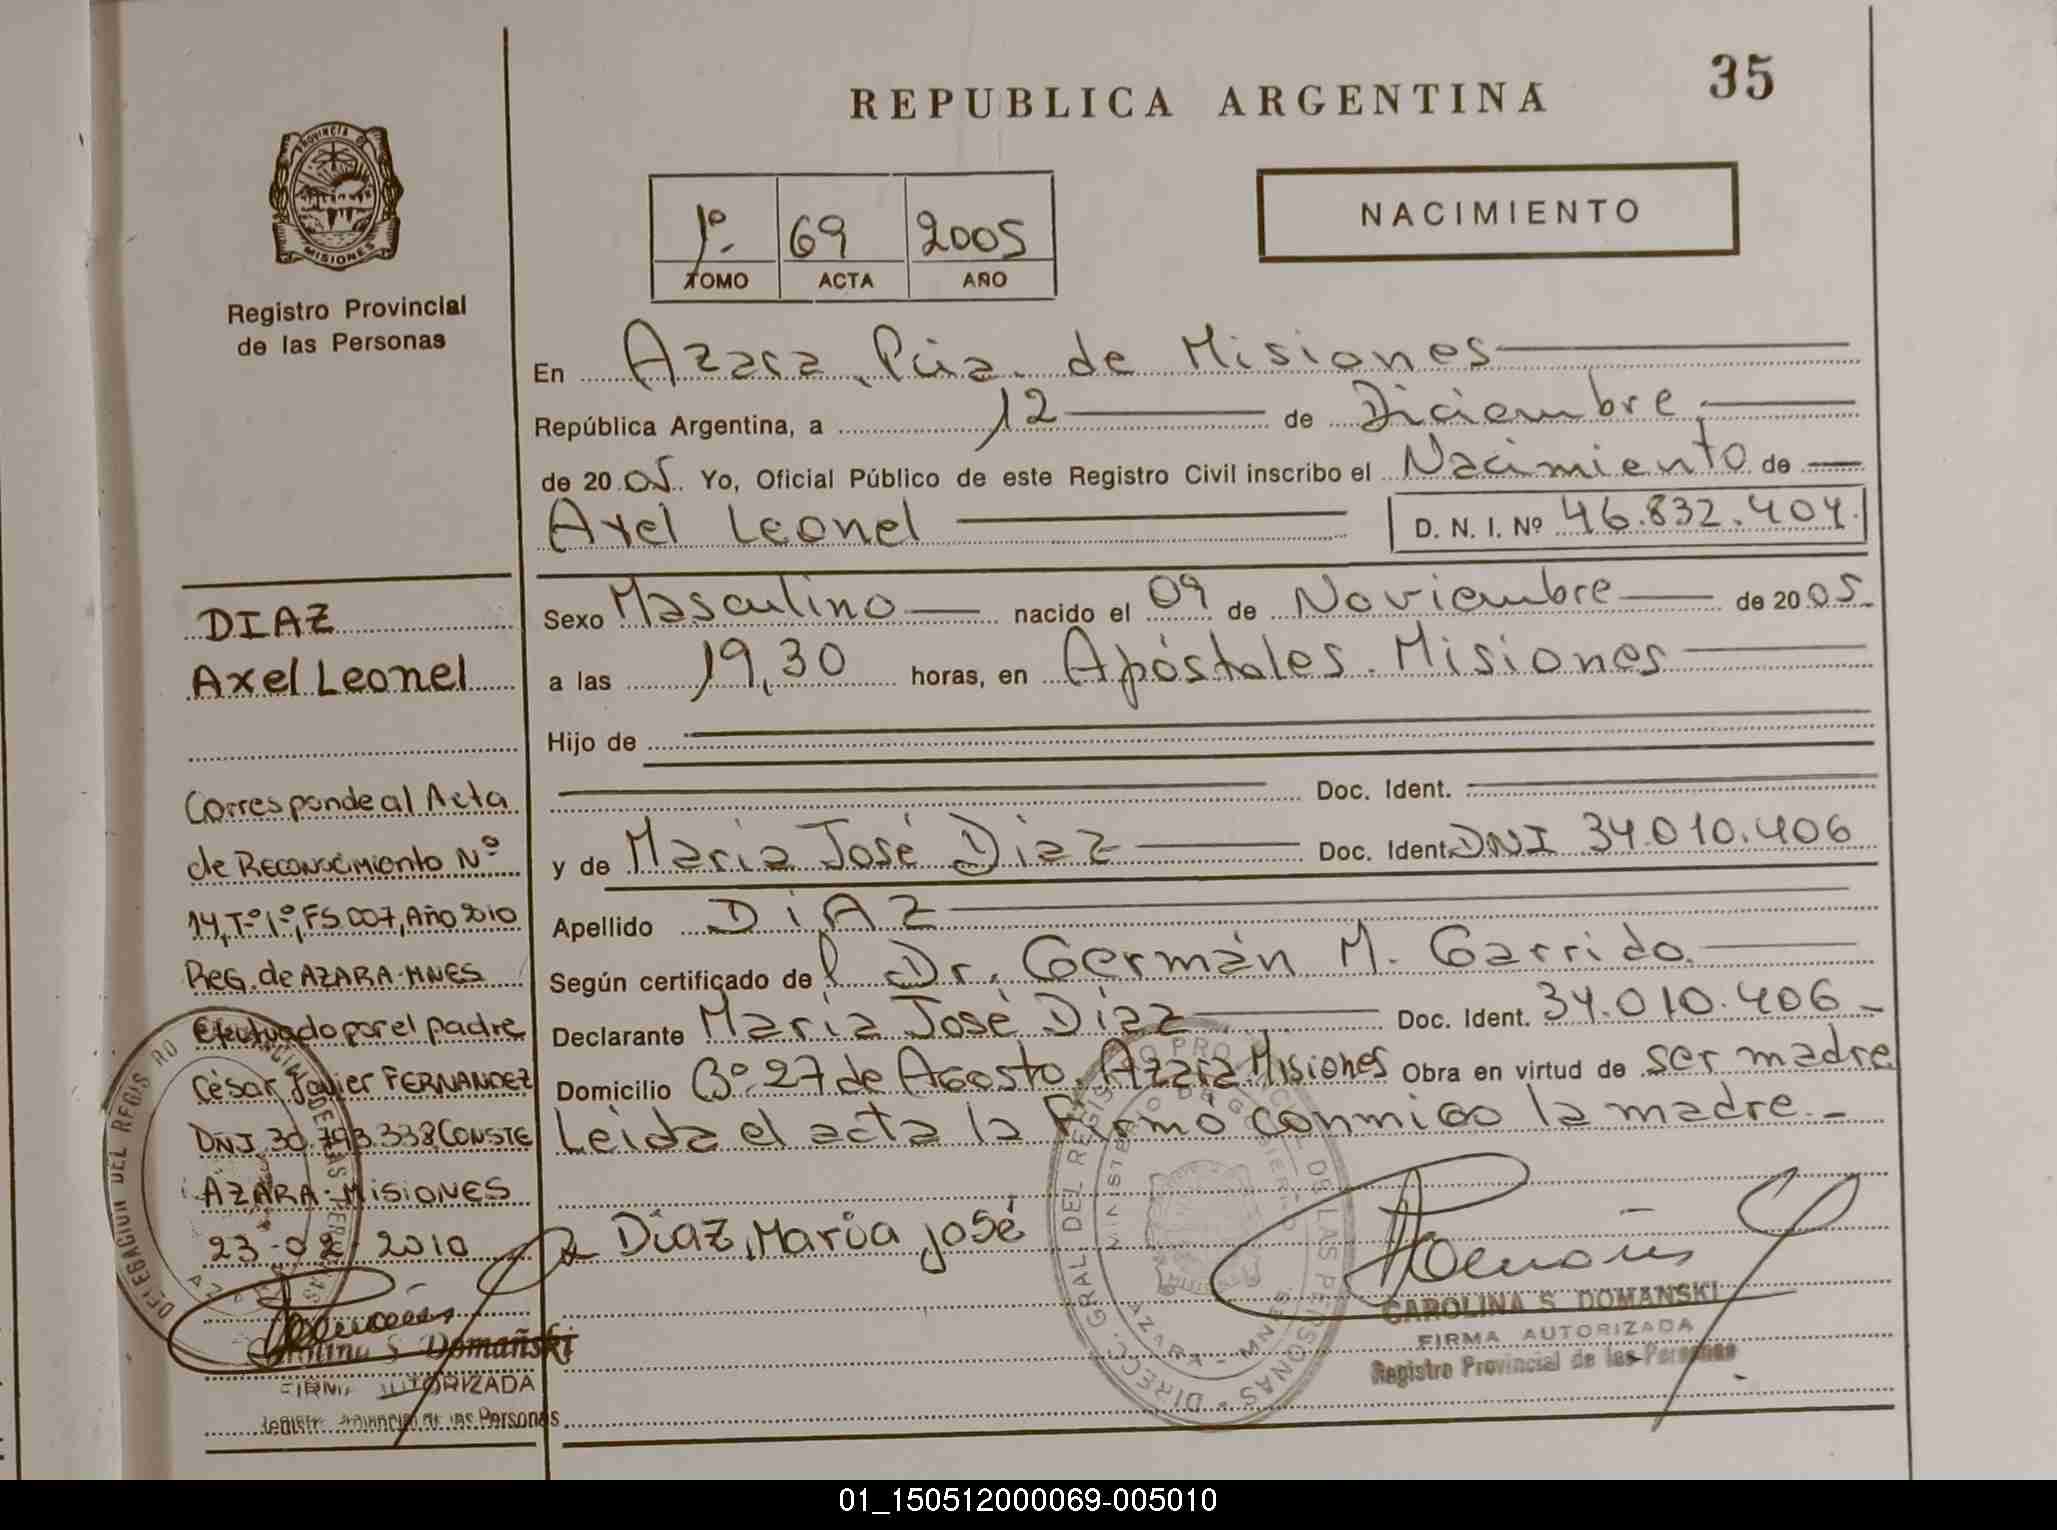 REPUBLICA ARGENTINA
35
PROVINCIA DE
MISIONES
Registro Provincial
de las Personas
1º.- 69 2005
TOMO ACTA AÑO
NACIMIENTO
En Azara, Pcia. de Misiones
República Argentina, a 12 de Diciembre
de 2005. Yo, Oficial Público de este Registro Civil inscribo el Nacimiento de
Axel Leonel D. N. I. Nº 46.832.404.
Sexo Masculino nacido el 09 de Noviembre de 2005.
a las 19,30 horas, en Apóstoles. Misiones
Hijo de
Doc. Ident.
y de María José Diaz Doc. Ident. DNI 34.010.406
Apellido DiAZ
Según certificado del Dr. Germán M. Garrido.
Declarante María José Díaz Doc. Ident. 34.010.406
Domicilio Bº.27 de Agosto. Azara Misiones Obra en virtud de ser madre
Leida el acta la firmó conmigo la madre.-
Diaz, María josé
CAROLINA S. DOMANSKI
FIRMA AUTORIZADA
Registro Provincial de las Personas
DIAZ
Axel Leonel
Corresponde al Acta
de Reconocimiento Nº
14, Tº 1º, FS 007, Año 2010
Reg. de AZARA-MNES
Efectuado por el padre
César Javier FERNANDEZ
DNJ 30.793.338 CONSTE
AZARA-MISIONES
23-02-2010
Carolina S. Domañski
FIRMA AUTORIZADA
Registro Provincial de las Personas
01_150512000069-005010